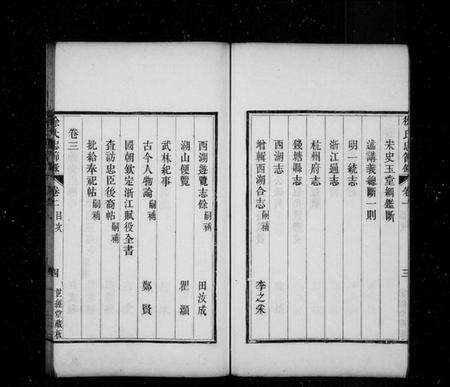 宋史玉堂綱鑑斷
通講義總斷一則
明一統志
浙江通志
杭州府志
錢塘縣志
西湖志
增輯西湖合志嗣補 李之采
三
西湖遊覽志餘嗣補 田汝成
湖山便覽 瞿灝
武林紀事
古今人物論嗣補 鄭賢
國朝欽定浙江賦役全書
查訪忠臣後裔帖嗣補
批給奉祀帖嗣補
卷三
卷二目次
四